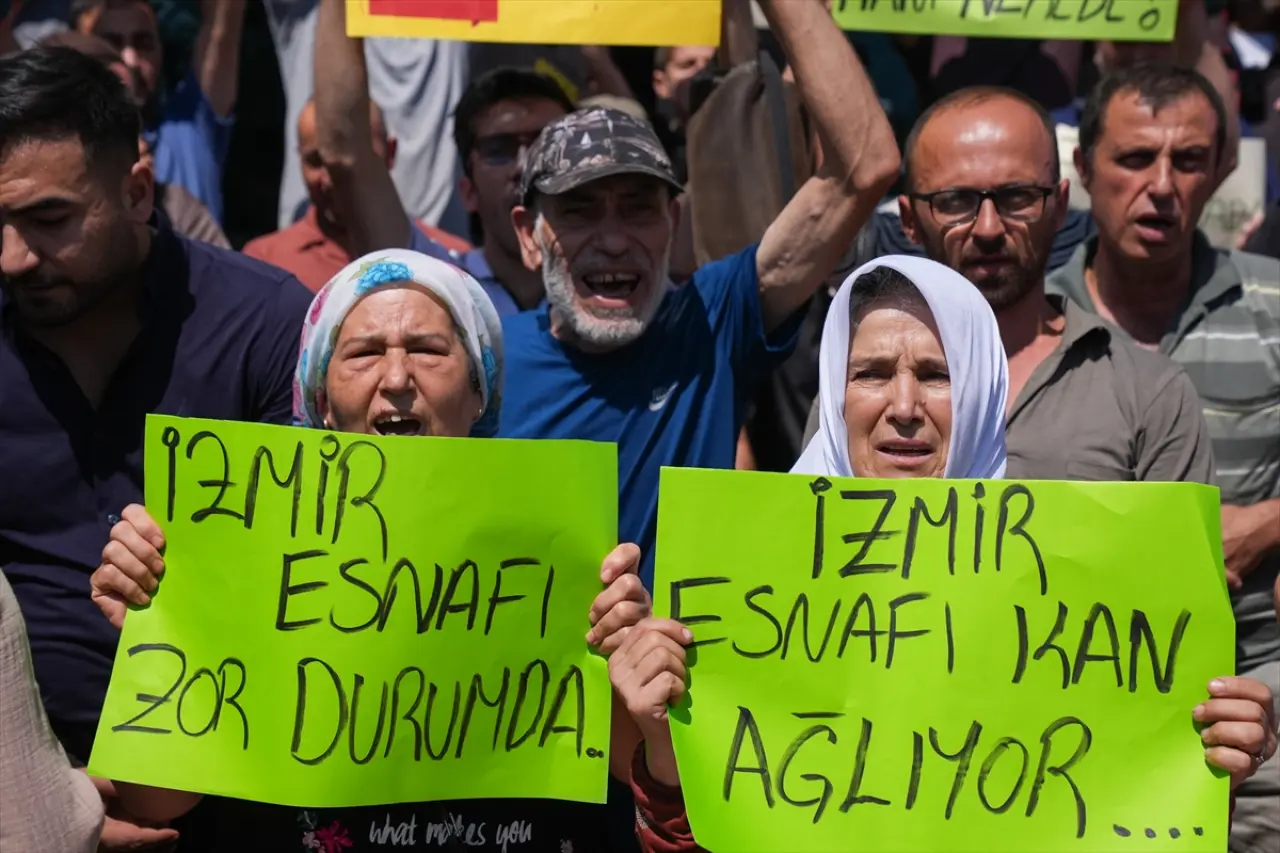 İZMİR
ESNAFI
ZOR DURUMDA..
İZMİR
ESNAFI KAN
AĞLIYOR....
what makes you